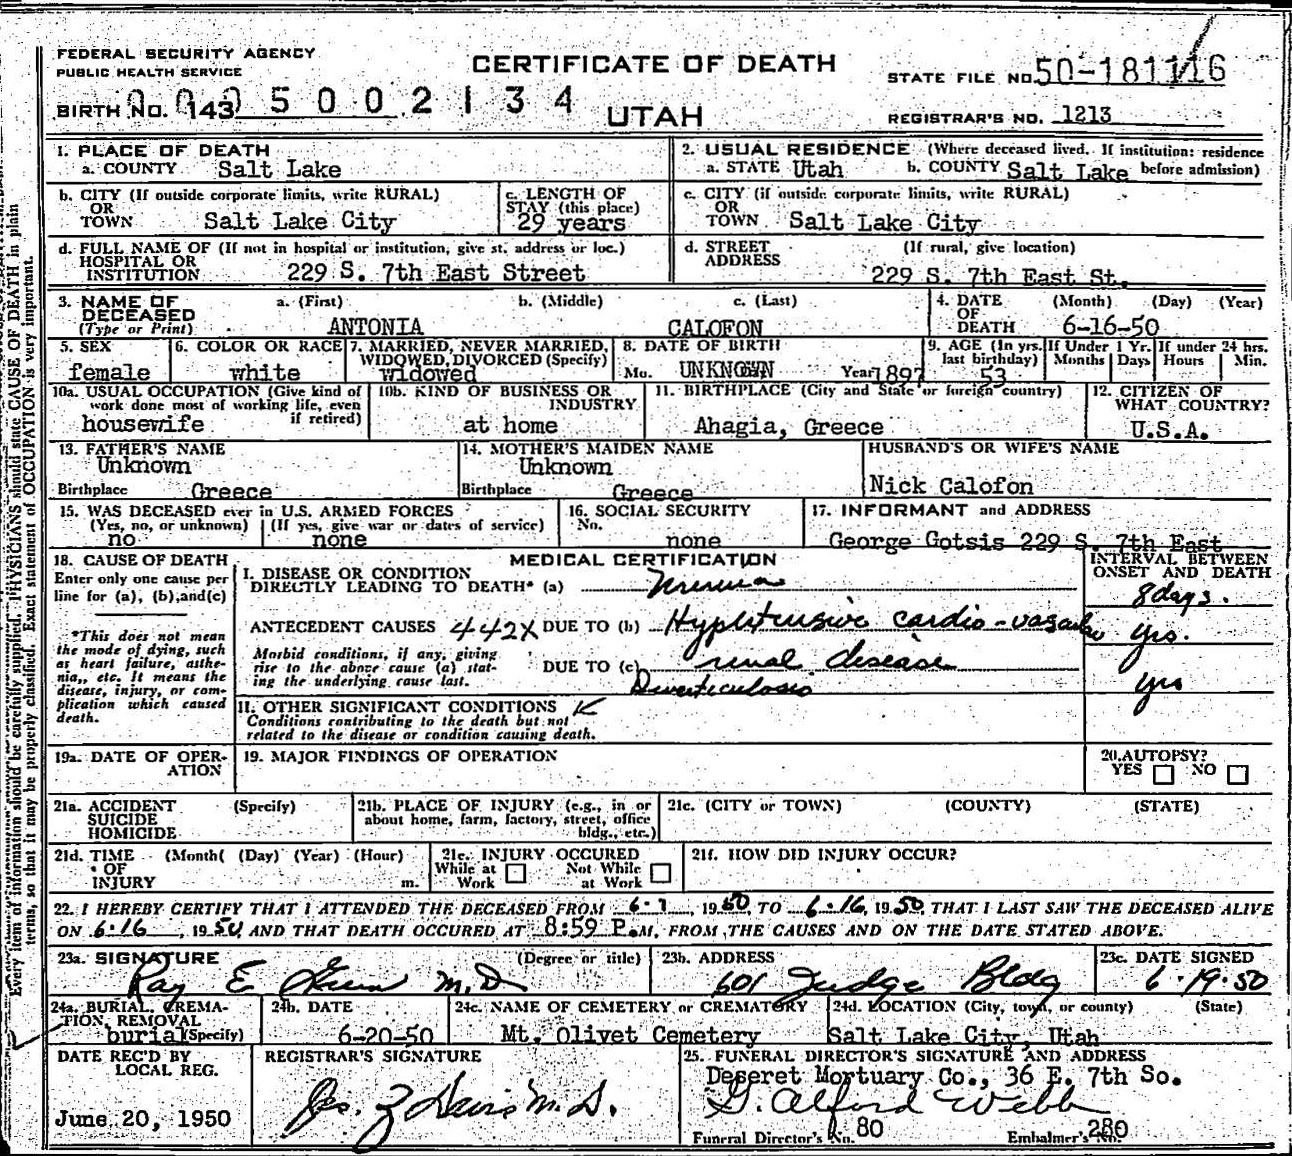 FEDERAL SECURITY AGENCY
PUBLIC HEALTH SERVICE
CERTIFICATE OF DEATH
STATE FILE NO. 50-181116
BIRTH NO. 143 0005002134
UTAH
REGISTRAR'S NO. 1213
1. PLACE OF DEATH
a. COUNTY Salt Lake
2. USUAL RESIDENCE (Where deceased lived. If institution: residence
a. STATE Utah b. COUNTY Salt Lake before admission)
b. CITY (If outside corporate limits, write RURAL)
OR
TOWN Salt Lake City
c. LENGTH OF
STAY (this place)
29 years
c. CITY (if outside corporate limits, write RURAL)
OR
TOWN Salt Lake City
d. FULL NAME OF (If not in hospital or institution, give st. address or loc.)
HOSPITAL OR
INSTITUTION 229 S. 7th East Street
d. STREET (If rural, give location)
ADDRESS
229 S. 7th East St.
3. NAME OF a. (First) b. (Middle) c. (Last)
DECEASED
(Type or Print) ANTONIA CALOFON
4. DATE (Month) (Day) (Year)
OF
DEATH 6-16-50
5. SEX
female
6. COLOR OR RACE
white
7. MARRIED, NEVER MARRIED,
WIDOWED, DIVORCED (Specify)
widowed
8. DATE OF BIRTH
Mo. UNKNOWN Year 1897
9. AGE (In yrs.
last birthday)
53
If Under 1 Yr.
Months Days
If under 24 hrs.
Hours Min.
10a. USUAL OCCUPATION (Give kind of
work done most of working life, even
if retired)
housewife
10b. KIND OF BUSINESS OR
INDUSTRY
at home
11. BIRTHPLACE (City and State or foreign country)
Ahagia, Greece
12. CITIZEN OF
WHAT COUNTRY?
U.S.A.
13. FATHER'S NAME
Unknown
Birthplace Greece
14. MOTHER'S MAIDEN NAME
Unknown
Birthplace Greece
HUSBAND'S OR WIFE'S NAME
Nick Calofon
15. WAS DECEASED ever in U.S. ARMED FORCES
(Yes, no, or unknown) (If yes, give war or dates of service)
no none
16. SOCIAL SECURITY
No.
none
17. INFORMANT and ADDRESS
George Gotsis 229 S. 7th East
18. CAUSE OF DEATH
Enter only one cause per
line for (a), (b), and (c)
*This does not mean
the mode of dying, such
as heart failure, asthe-
nia, etc. It means the
disease, injury, or com-
plication which caused
death.
MEDICAL CERTIFICATION
I. DISEASE OR CONDITION
DIRECTLY LEADING TO DEATH* (a) Uremia
ANTECEDENT CAUSES 442X DUE TO (b) Hypertensive cardio-vascular
Morbid conditions, if any, giving
rise to the above cause (a) stat-
ing the underlying cause last.
DUE TO (c) renal disease
Diverticulosis
II. OTHER SIGNIFICANT CONDITIONS
Conditions contributing to the death but not
related to the disease or condition causing death.
INTERVAL BETWEEN
ONSET AND DEATH
8 days.
yrs.
yrs
19a. DATE OF OPER-
ATION
19. MAJOR FINDINGS OF OPERATION
20. AUTOPSY?
YES NO
21a. ACCIDENT (Specify)
SUICIDE
HOMICIDE
21b. PLACE OF INJURY (e.g., in or
about home, farm, factory, street, office
bldg., etc.)
21c. (CITY or TOWN) (COUNTY) (STATE)
21d. TIME (Month( (Day) (Year) (Hour)
OF
INJURY m.
21e. INJURY OCCURED
While at Not While
Work at Work
21f. HOW DID INJURY OCCUR?
22. I HEREBY CERTIFY THAT I ATTENDED THE DECEASED FROM 6-7, 1950, TO 6-16, 1950, THAT I LAST SAW THE DECEASED ALIVE
ON 6-16, 1950, AND THAT DEATH OCCURED AT 8:59 P.M, FROM THE CAUSES AND ON THE DATE STATED ABOVE.
23a. SIGNATURE (Degree or title)
Ray E M.D
23b. ADDRESS
601 Judge Bldg
23c. DATE SIGNED
6-19-50
24a. BURIAL, CREMA-
TION, REMOVAL
burial (Specify)
24b. DATE
6-20-50
24c. NAME OF CEMETERY or CREMATORY
Mt. Olivet Cemetery
24d. LOCATION (City, town, or county) (State)
Salt Lake City, Utah
DATE REC'D BY
LOCAL REG.
June 20, 1950
REGISTRAR'S SIGNATURE
M.D.
25. FUNERAL DIRECTOR'S SIGNATURE AND ADDRESS
Deseret Mortuary Co., 36 E. 7th So.
G. Alford Webb
Funeral Director's No. 80 Embalmer's No. 280
Every item of information should be carefully supplied. PHYSICIANS should state CAUSE OF DEATH in plain
terms, so that it may be properly classified. Exact statement of OCCUPATION is very important.